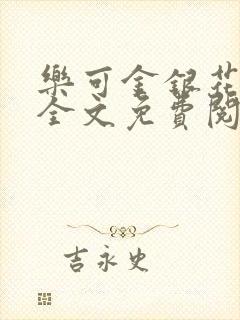 樂可金銀花
全文免費閱
吉永史